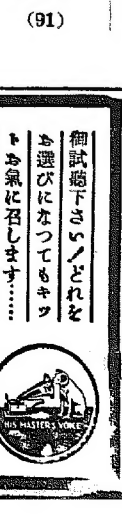 (91)
御試聽下さい!どれを
お選びになつてもキッ
トお氣に召します……
HIS MASTER'S VOICE